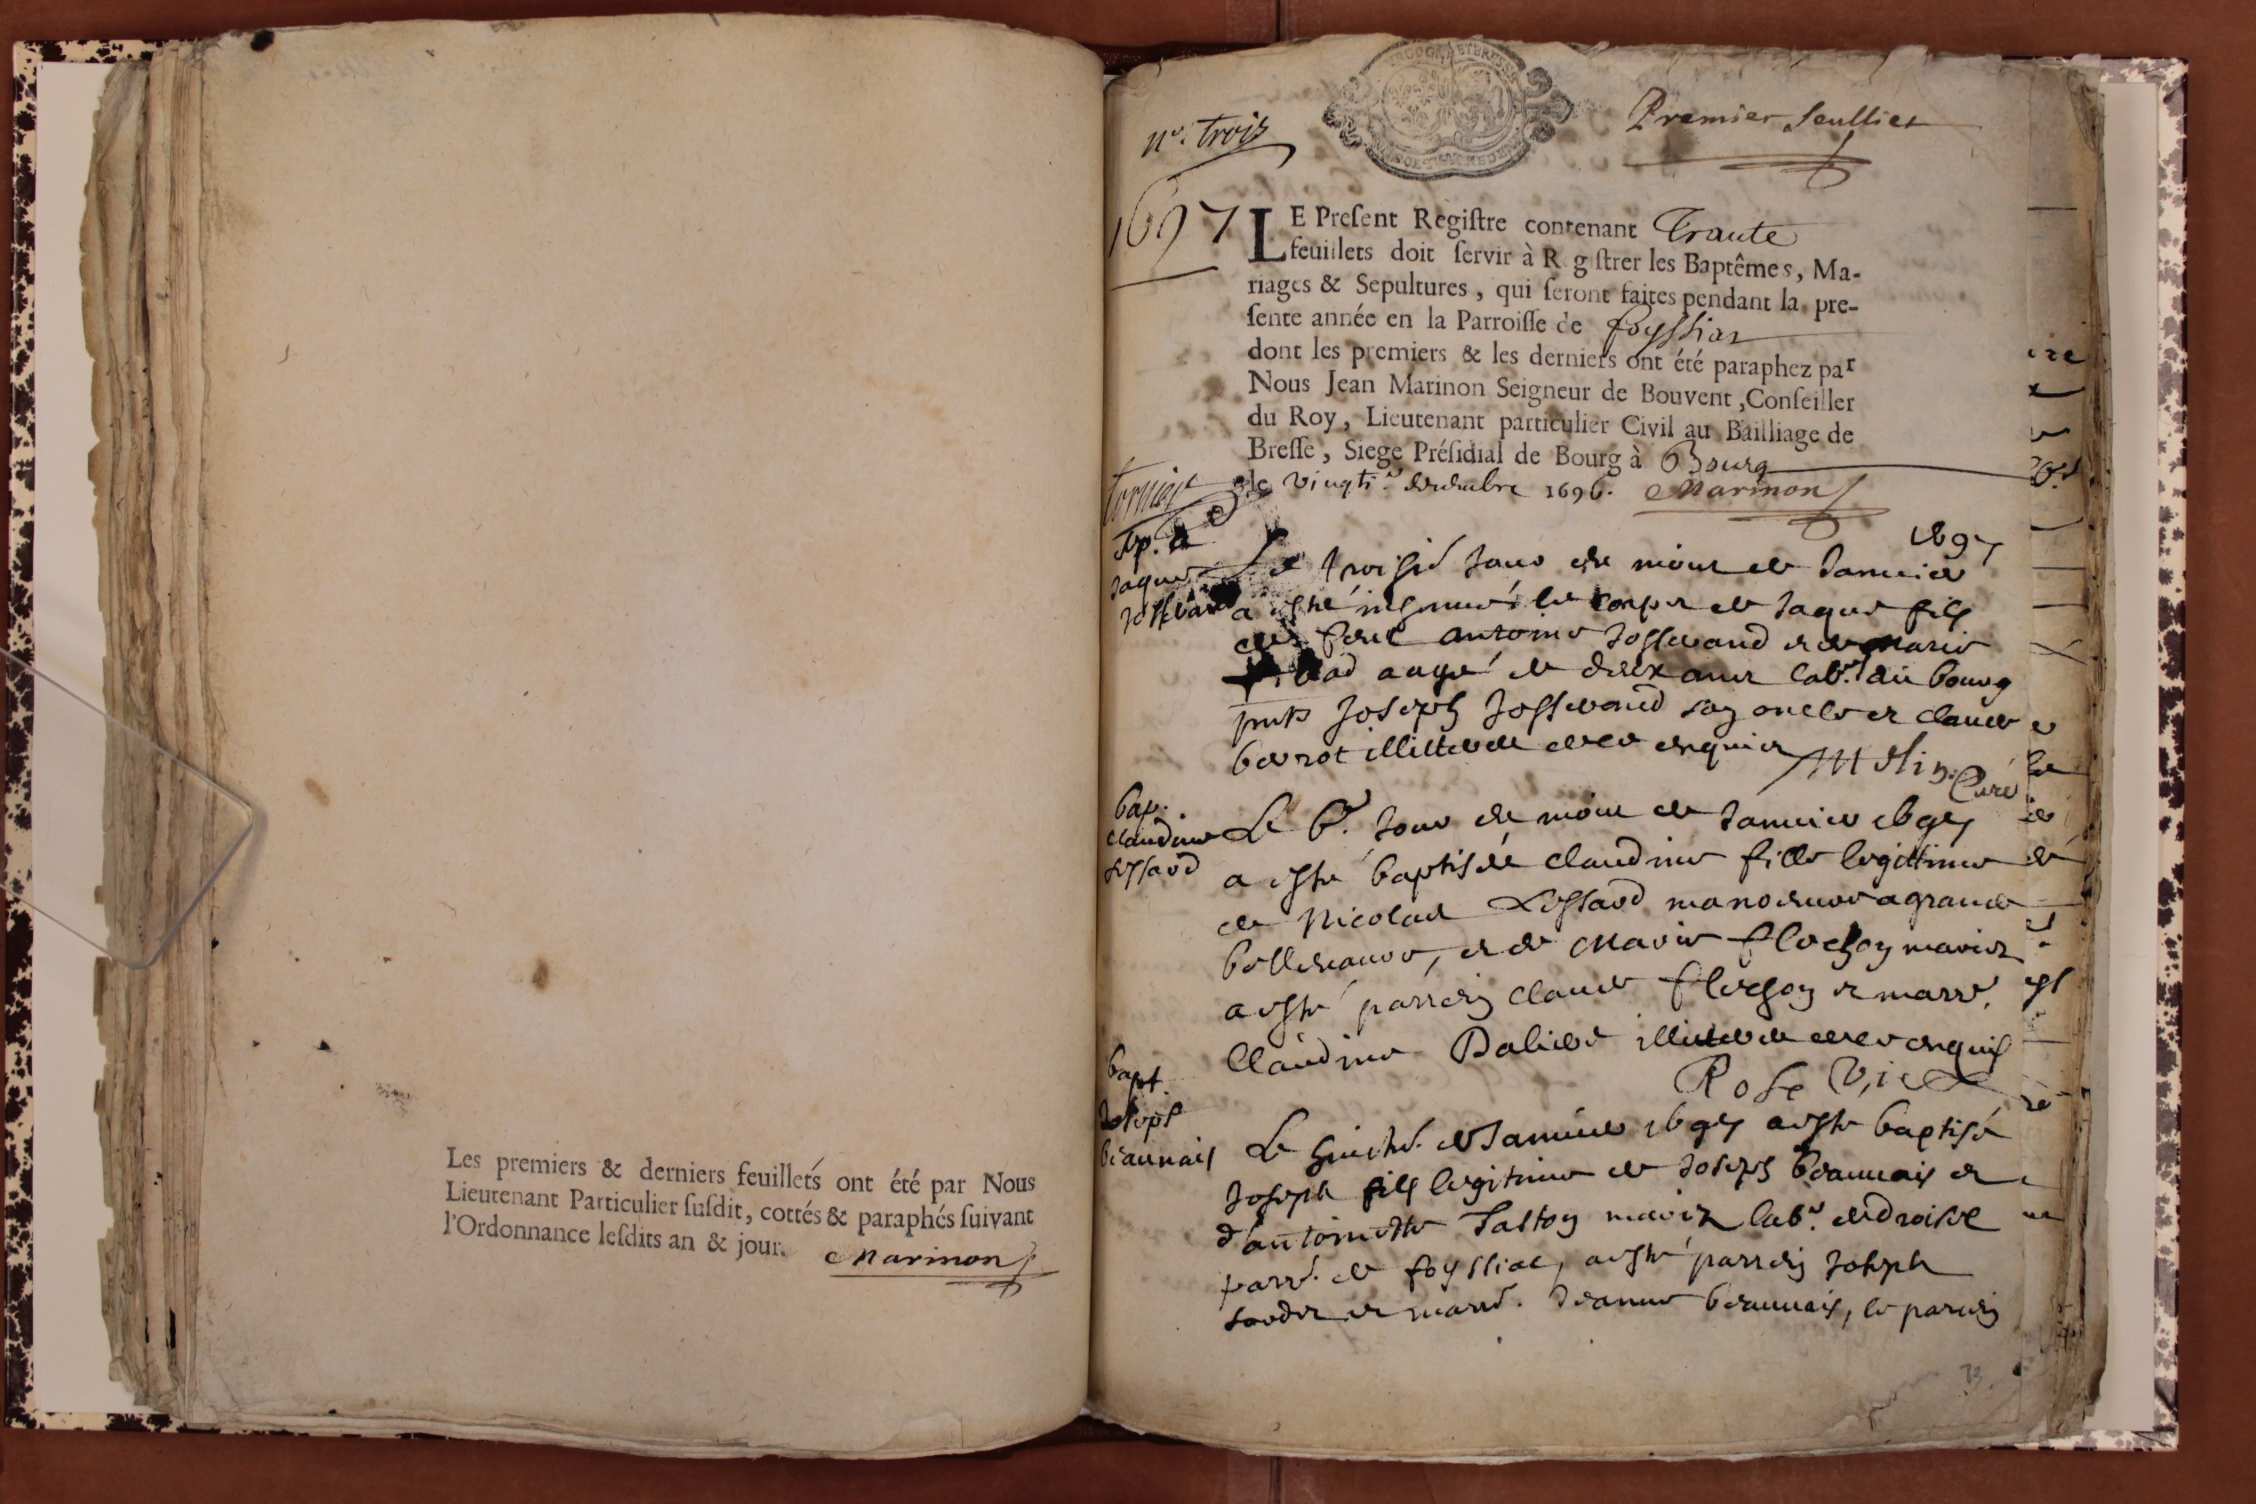 Les premiers & derniers feuillets ont été par Nous
Lieutenant Particulier susdit, cottés & paraphés suivant
l'Ordonnance lesdits an & jour.
Marinon
n°. trois
Premier feuillet
1697
LE Present Registre contenant Trante
feuillets doit servir à R gistrer les Baptêmes, Ma-
riages & Sepultures, qui seront faites pendant la pre-
sente année en la Parroisse de foyssiat
dont les premiers & les derniers ont été paraphez par
Nous Jean Marinon Seigneur de Bouvent, Conseiller
du Roy, Lieutenant particulier Civil au Bailliage de
Bresse, Siege Présidial de Bourg à Bourg
le vingti.e decembre 1696. Marinon
1697
Sep. de
Jaques
Josserand
Le troisie Jour du mois de Janvier
a esté inhumé le corps de Jaques fils
de feu antoine Josserand et de Marie
aagé de deux ans lab.r du bourg
pnts Joseph Josserand son oncle et claude
berrot illitterés de ce enquis
Melin Curé
bap.
claudine
Le 6.e Jour du mois de Janvier 1697
a esté baptisée claudine fille legittime
de Nicolas manoeuvre a grande
et de Marie flochon mariez
a esté parrein claude flochon et marr.
Claudine illiterés de ce enquis
Rose Vic
bapt.
Joseph
beauvais
Le huicti. de Janvier 1697 a esté baptisé
Joseph fils legitime de Joseph beauvais et
d'antoinette mariez lab.r
parr. de foyssiat, a esté parrein Joseph
et marr. Jeanne beauvais, le parrein